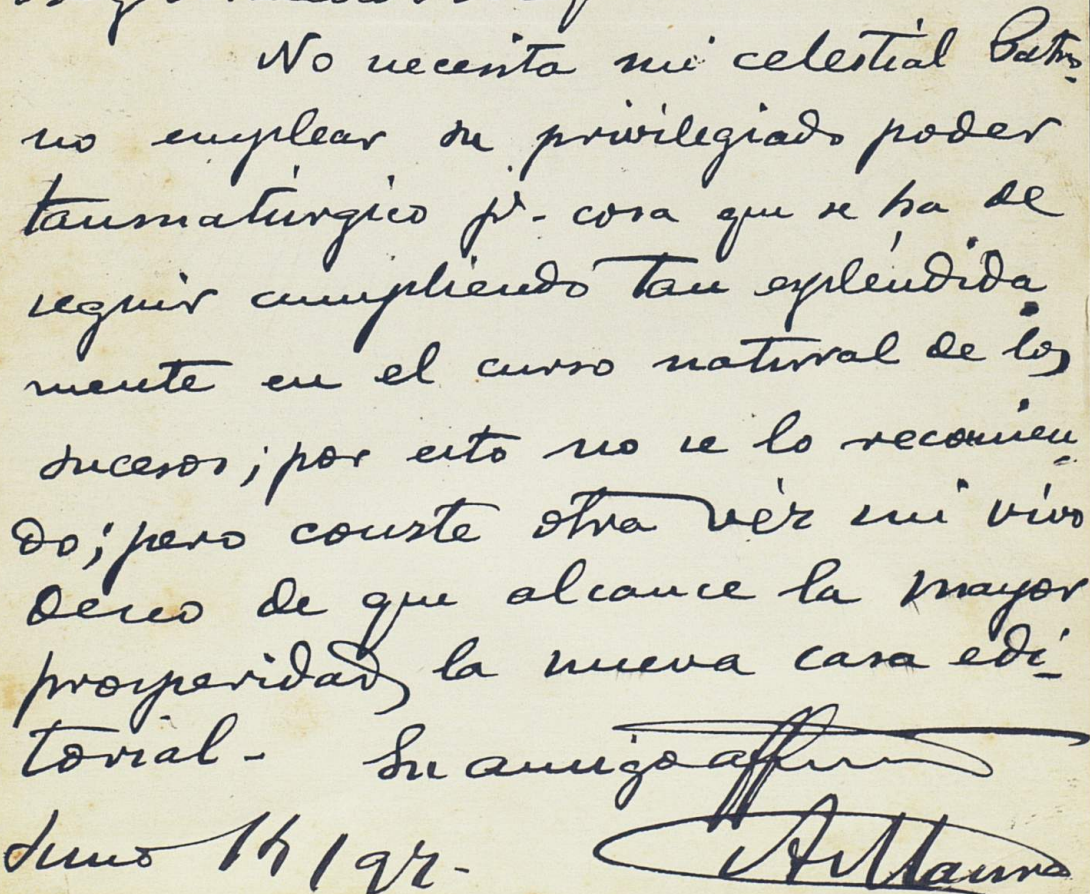 No necesita mi celestial Patro-
no emplear su privilegiado poder
taumatúrgico pª. cosa que se ha de
seguir cumpliendo tan espléndida
mente en el curso natural de los
sucesos; por esto no se lo recomien-
do; pero conste otra véz mi vivo
deseo de que alcance la mayor
prosperidad la nueva casa edi-
torial. Su amigo affmo
Junio 14/97.
AMaura